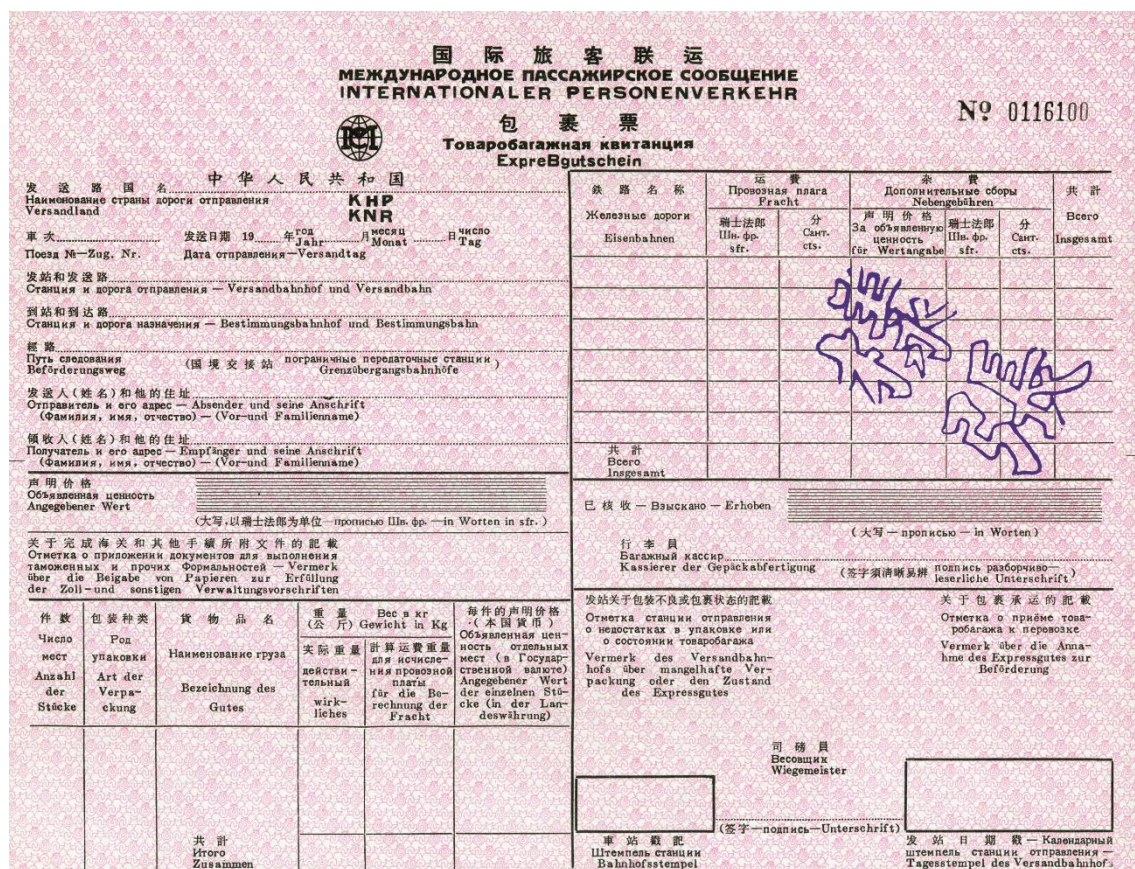 国际旅客联运
МЕЖДУНАРОДНОЕ ПАССАЖИРСКОЕ СООБЩЕНИЕ
INTERNATIONALER PERSONENVERKEHR
№ 0116100
包裹票
Товаробагажная квитанция
ExpreBgutschein
发送路国名 中华人民共和国
Наименование страны дороги отправления КНР
Versandland KNR
車次 发送日期 19 年 год Jahr 月 месяц Monat 日 число Tag
Поезд №—Zug. Nr. Дата отправления—Versandtag
发站和发送路
Станция и дорога отправления — Versandbahnhof und Versandbahn
到站和到达路
Станция и дорога назначения — Bestimmungsbahnhof und Bestimmungsbahn
經路
Путь следования (国境交接站 пограничные передаточные станции)
Beförderungsweg Grenzübergangsbahnhöfe
发送人(姓名)和他的住址
Отправитель и его адрес — Absender und seine Anschrift
(Фамилия, имя, отчество) — (Vor-und Familienname)
领收人(姓名)和他的住址
Получатель и его адрес — Empfänger und seine Anschrift
(Фамилия, имя, отчество) — (Vor-und Familienname)
声明价格
Объявленная ценность
Angegebener Wert
(大写,以瑞士法郎为单位—прописью Шв. фр. —in Worten in sfr.)
关于完成海关和其他手續所附文件的記載
Отметка о приложении документов для выполнения
таможенных и прочих Формальностей — Vermerk
über die Beigabe von Papieren zur Erfüllung
der Zoll-und sonstigen Verwaltungsvorschriften
件数
Число
мест
Anzahl
der
Stücke
包装种类
Род
упаковки
Art der
Verpa-
ckung
貨物品名
Наименование груза
Bezeichnung des
Gutes
重量 Вес в кг
(公斤) Gewicht in Kg
实际重量
действи-
тельный
wirk-
liches
計算运費重量
для исчисле-
ния провозной
платы
für die Be-
rechnung der
Fracht
每件的声明价格
(本国貨币)
Объявленная цен-
ность отдельных
мест (в Государ-
ственной валюте)
Angegebener Wert
der einzelnen Stü-
cke (in der Lan-
deswährung)
共計
Итого
Zusammen
鉄路名称
Железные дороги
Eisenbahnen
运費
Провозная плага
Fracht
瑞士法郎
Шв. фр.
sfr.
分
Сант.
cts.
杂費
Дополнительные сборы
Nebengebühren
声明价格
За объявленную
ценность
für Wertangabe
瑞士法郎
Шв. фр.
sfr.
分
Сант.
cts.
共計
Всего
Insgesamt
共計
Всего
Insgesamt
已核收 — Взыскано — Erhoben
(大写 — прописью — in Worten)
行李員
Багажный кассир
Kassierer der Gepäckabfertigung (签字須清晰易辨 подпись разборчиво— leserliche Unterschrift)
发站关于包装不良或包裹状态的記載
Отметка станции отправления
о недостатках в упаковке или
о состоянии товаробагажа
Vermerk des Versandbahn-
hofs über mangelhafte Ver-
packung oder den Zustand
des Expressgutes
关于包裹承运的記載
Отметка о приёме това-
робагажа к перевозке
Vermerk über die Anna-
hme des Expressgutes zur
Beförderung
司磅員
Весовщик
Wiegemeister
(签字—подпись—Unterschrift)
車站戳記
Штемпель станции
Bahnhofsstempel
发站日期戳 — Календарный
штемпель станции отправления —
Tagesstempel des Versandbahnhofs